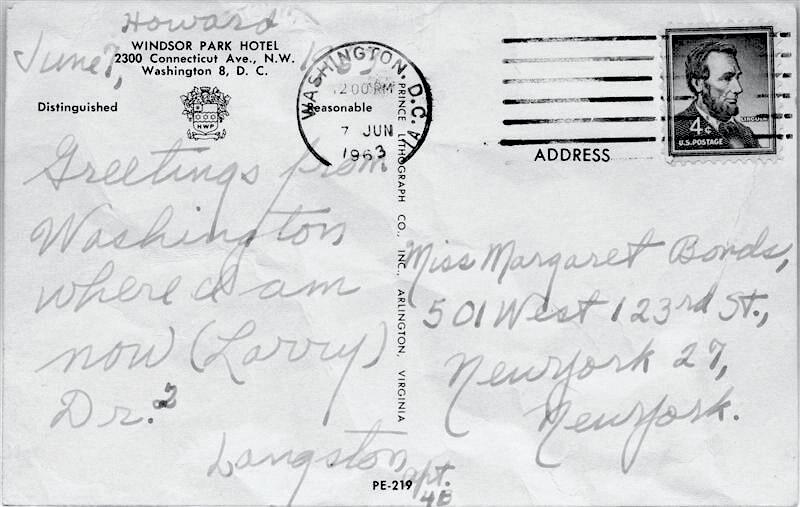 Howard
June 7, 1963
WINDSOR PARK HOTEL
2300 Connecticut Ave., N.W.
Washington 8, D. C.
Distinguished
Reasonable
HWP
Greetings from
Washington
where I am
now (Larry)
Dr.2
Langston
WASHINGTON, D.C.
12 00 PM
7 JUN
1963
PRINCE LITHOGRAPH CO., INC., ARLINGTON, VIRGINIA
PE-219
4¢
LINCOLN
U.S. POSTAGE
ADDRESS
Miss Margaret Bonds,
501 West 123rd St.,
New York 27,
New York.
apt.
4B